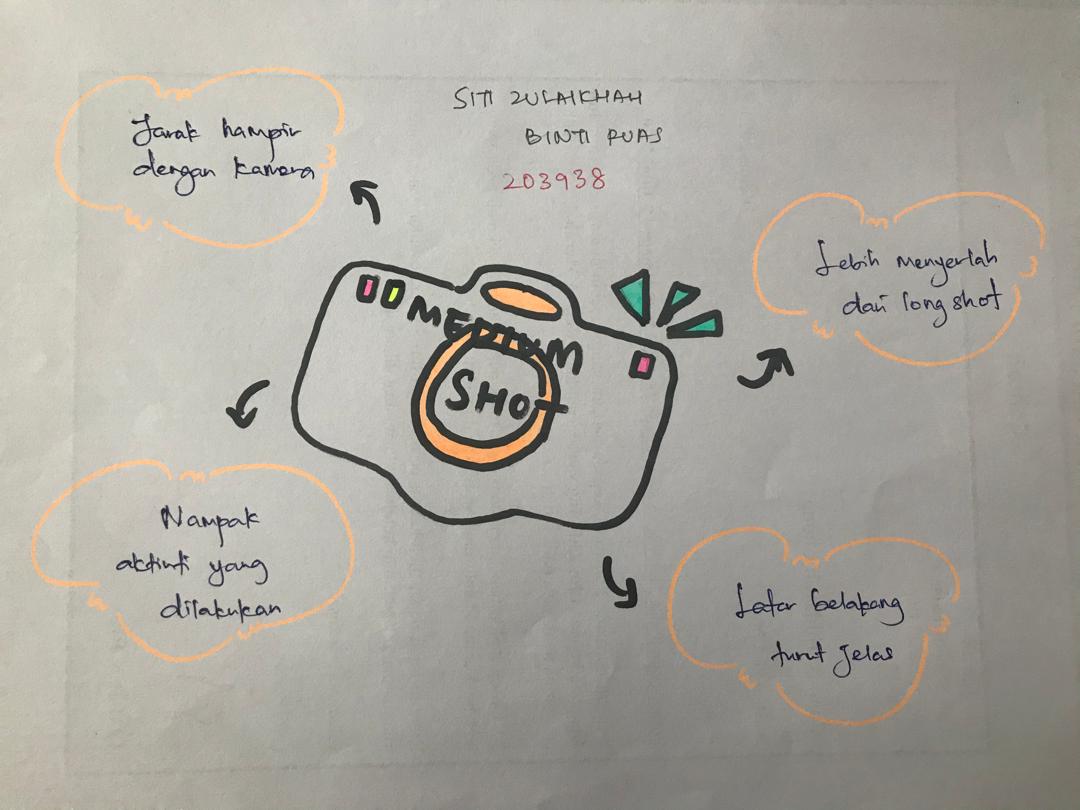 SITI ZULAIKHAH
BINTI PUAS
203938
Jarak hampir
dengan kamera
Lebih menyerlah
dari long shot
MEDIUM
SHOT
Nampak
aktiviti yang
dilakukan
Latar belakang
turut jelas